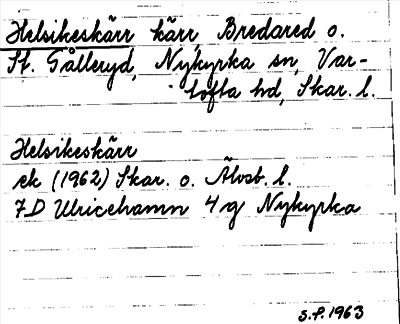 Helsikeskärr kärr Bredared o.
St. Gålleryd, Nykyrka sn, Var-
tofta hd, Skar. l.
Helsikeskärr
ek (1962) Skar. o. Älvsb. l.
7D Ulricehamn 4g Nykyrka
S.F. 1963